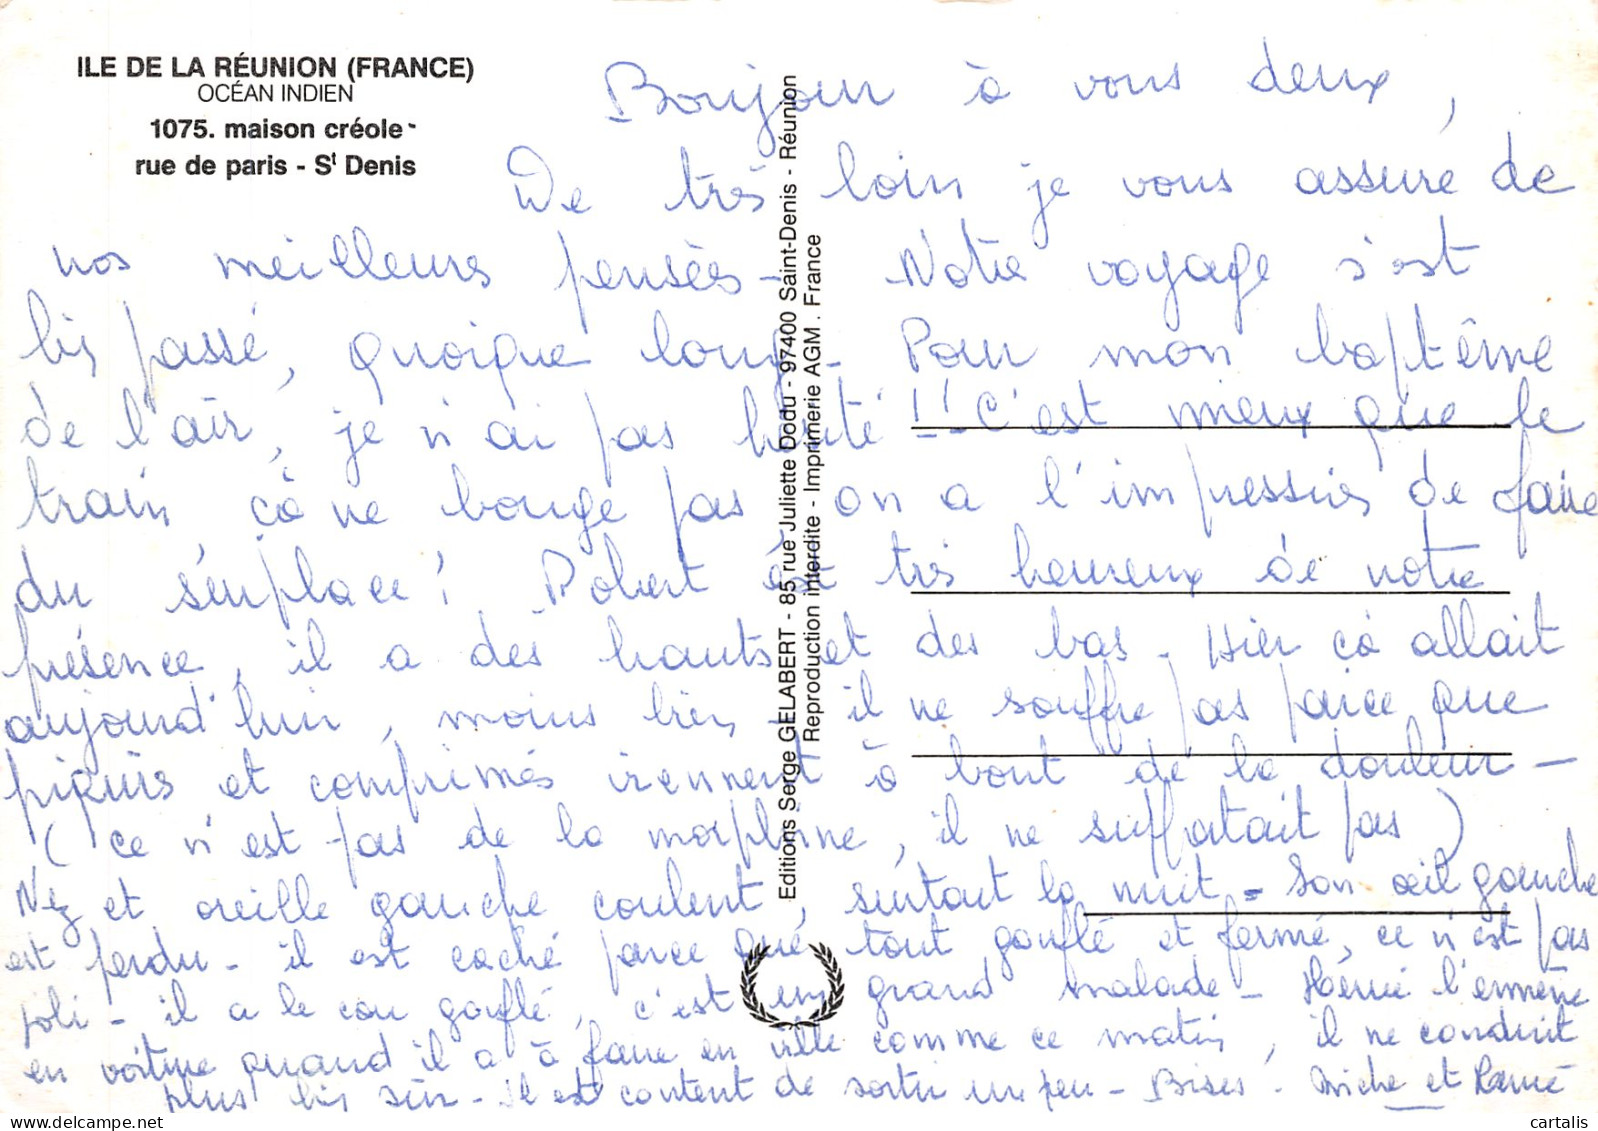 ILE DE LA RÉUNION (FRANCE)
OCÉAN INDIEN
1075. maison créole
rue de paris - St Denis
Bonjour à vous deux,
De très loin je vous assure de
nos meilleures pensées - Notre voyage s'est
bien passé, quoique long - Pour mon baptême
de l'air, je n'ai pas hésité !! - C'est mieux que le
train, ça ne bouge pas on a l'impression de faire
du s'enplace ! Robert est très heureux de notre
présence, il a des hauts et des bas - Hier ça allait
aujourd'hui, moins bien - il ne souffre pas parce que
piqures et comprimés viennent à bout de la douleur -
( ce n'est pas de la morphine, il ne supportait pas )
Nez et oreille gauche coulent, surtout la nuit - Son œil gauche
est perdu - il est caché parce que tout gonflé et fermé, ce n'est pas
joli - il a le cou gonflé, c'est un grand malade - Hervé l'emmène
en voiture quand il a à faire en ville comme ce matin, il ne conduit
plus bien sûr - Il est content de sortir un peu - Bises - et René
Editions Serge GELABERT - 85 rue Juliette Dodu - 97400 Saint-Denis - Réunion
Reproduction interdite - Imprimerie AGM . France
cartalis.com